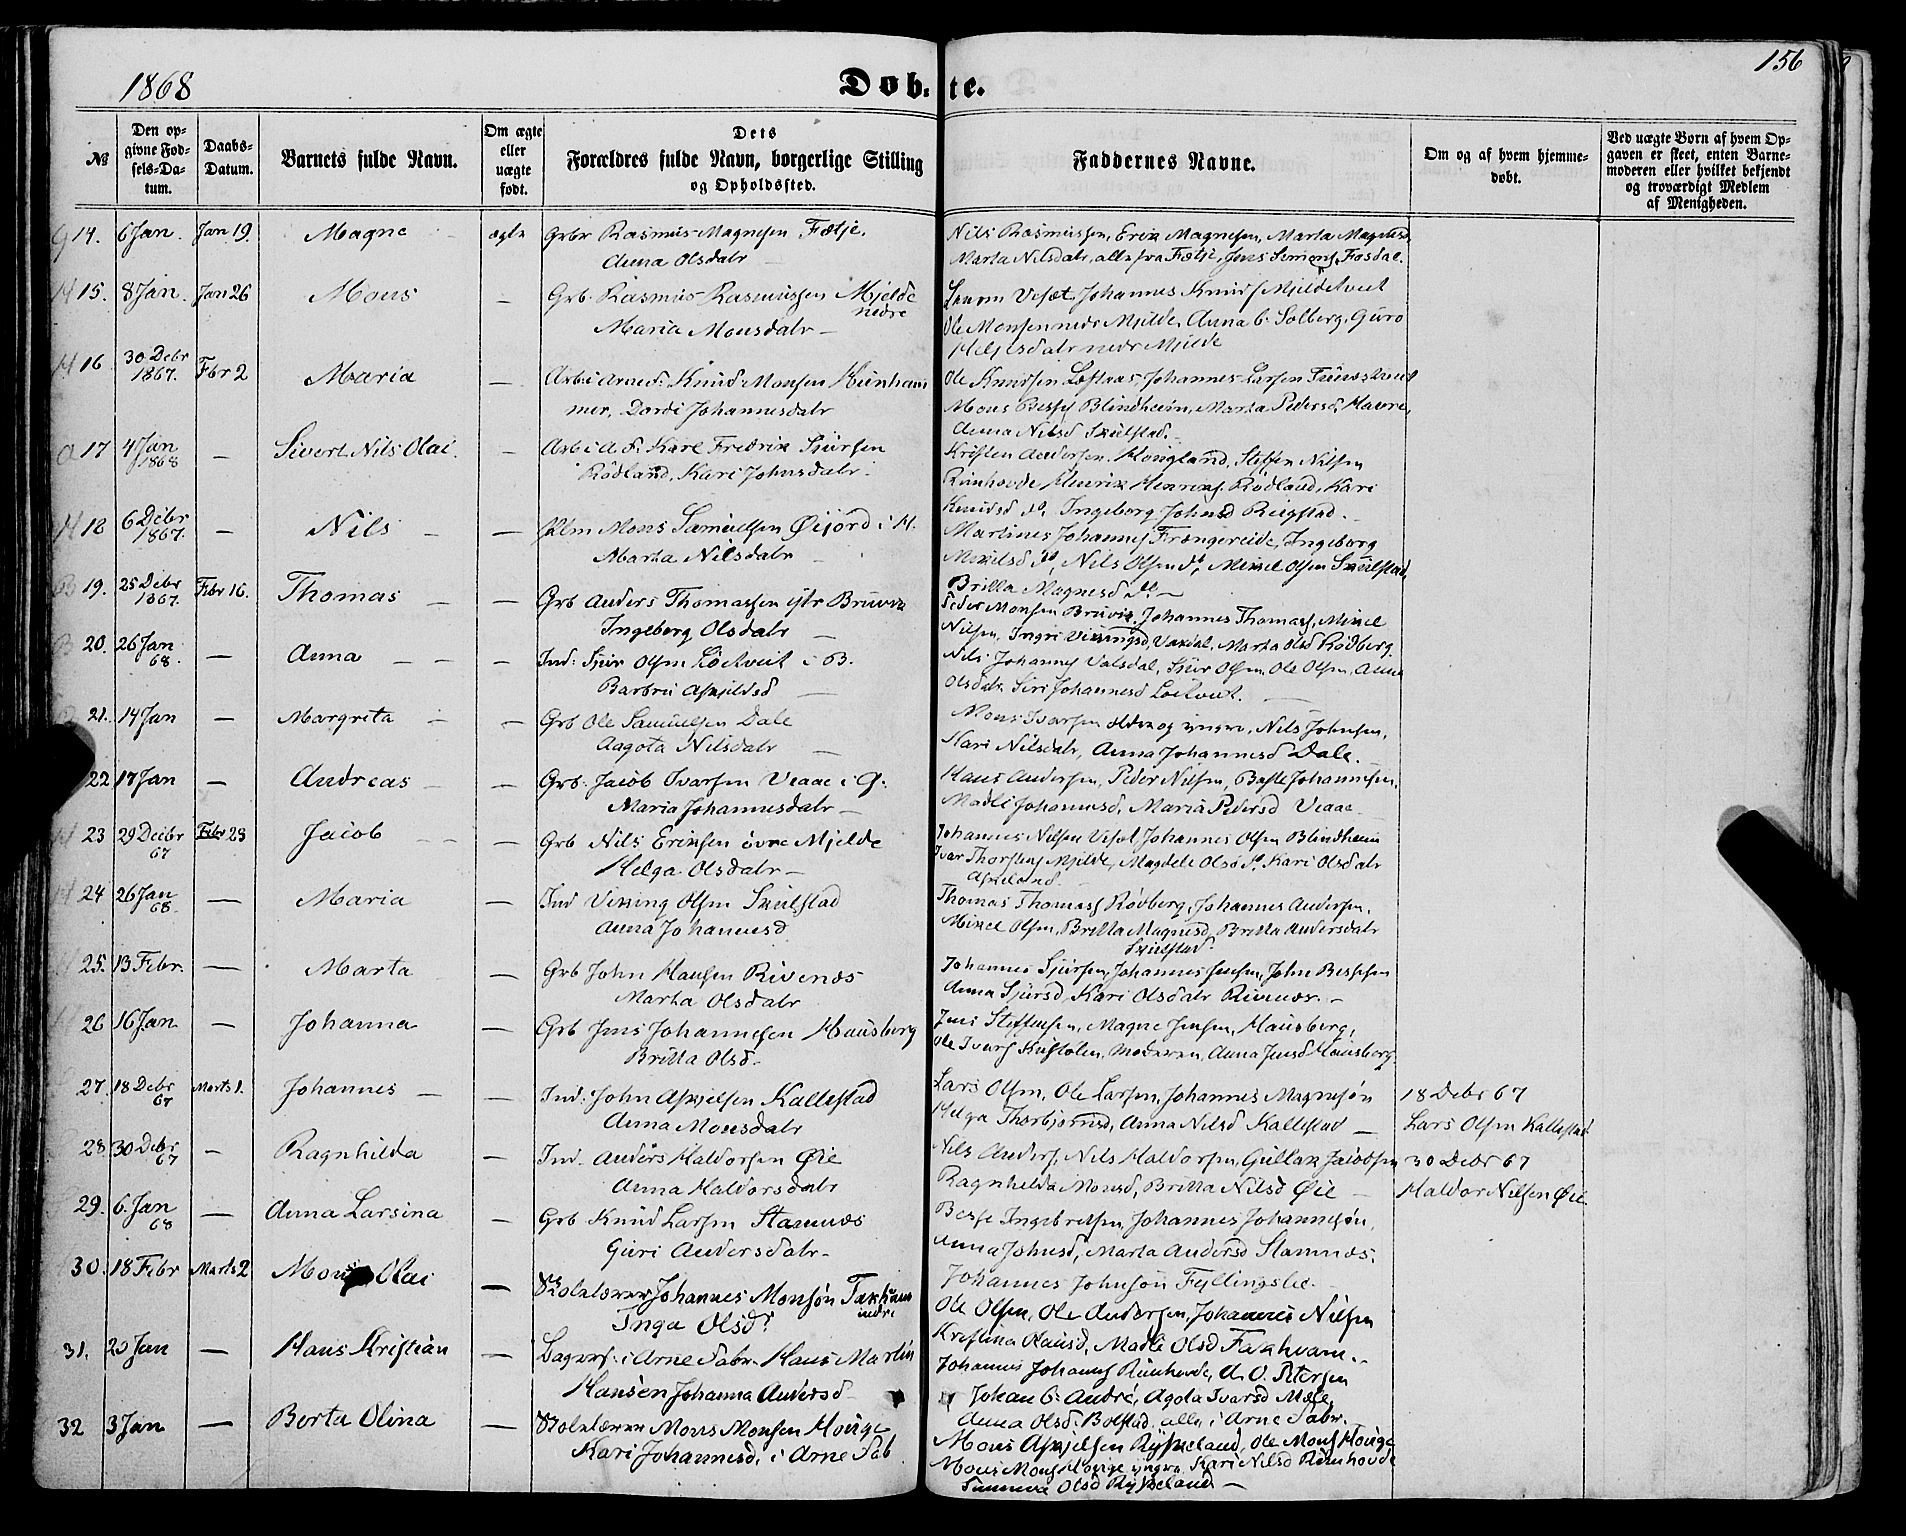 156
1868
Døbte.
№
Den opgivne Fødsels-Datum.
Daabs-Datum.
Barnets fulde Navn.
Om ægte eller uægte født.
Dets Forældres fulde Navn, borgerlige Stilling og Opholdssted.
Faddernes Navne.
Om og af hvem hjemmedøbt.
Ved uægte Børn af hvem Opgaven er skeet, enten Barnemoderen eller hvilket bekjendt og troværdigt Medlem af Menigheden.
14. 6 Jan. Jan 19. Magne ægte Grbr Rasmus Magnesen Fætje.
Anna Olsdatr
Nils Rasmussen, Erik Magnesen, Marta Magnesd,
Marta Nilsdatr, alle fra Fætje, Jens Simons. Fosdal.
15. 8 Jan. Jan 26 Mons — Grb. Rasmus Rasmussen Mjelde nedre
Maria Monsdatr —
Johannes Knuds Mjeldetveit
Ole Monsen nedr Mjelde, Anna C. Solberg, Guro
Helgesdatr nedr Mjelde
16 30 Debr 1867. Fbr 2 Maria — Arb: i Arne F. Knud Monsen
mer, Dordi Johannesdatr
Ole Knudsen Loftaas, Johannes Larsen
Mons Besses Blindheim, Marta Pedersd. Havre,
Anna Nilsd Skulstad.
17 4 Jan 1868 — Sivert Nils Olai. — Arb i A F. Karl Fredrik Sjursen
Rødland, Kari Johnsdatr.
Kristen Andersen, Hougland, Steffen Nilsen
Runhovde Henrik Henriks. Rødland, Kari
Knudsd do, Ingeborg Johnsd
18 6 Debr 1867. — Nils — Mons Samuelsen Øijord i H.
Marta Nilsdatr
Martines Johannes. Frøngereide, Ingeborg
Mikelsd do, Nils Olsen do, Mikel Olsen Skulstad,
Britta Magnesd do —
19. 25 Debr 1867. Febr 16. Thomas — Grb Anders Thomassen ytr Bruvik
Ingeborg Olsdatr —
Peder Monsen Bruvik, Johannes Thomass, Mikel
Nilsen, Ingri Vikingsd, Vaxdal, Marta Olsd Rødberg.
20. 26 Jan 68. — Anna — Ind: Sjur Olsen Lockveit i B.
Barbru Askjelds d —
Nils Johannes Valsdal, Sjur Olsen, Ole Olsen, Anna
Olsdatr, Siri Johannesd
21. 14 Jan — Margreta — Grb Ole Samuelsen Dale
Aagota Nilsdatr —
Mons Ivarsen ældre og yngre, Nils Johnsen,
Kari Nilsdatr, Anna Johannesd Dale. —
22 17 Jan — Andreas — Grb: Jacob Ivarsen Veaae i G.
Maria Johannesdatr —
Hans Andersen, Peder Nilsen, Besse Johannesen,
Madli Johannesd, Maria Pedersd Veaae
23 29 Decbr 67 Febr 23 Jacob — Grb Nils Eriksen øvre Mjelde
Helga Olsdatr —
Johannes Nilsen Veset, Johannes Olsen Blindheim
Ivar Thorstens. Mjelde, Magdele Olsd do, Kari Olsdatr
Askeland
24 26 Jan 68. — Maria — Ind Viking Olsen Skulstad
Anna Johannesd
Thomas Thomass Rødberg, Johannes Andersen,
Mikel Olsen, Britta Magnesd, Britta Andersdatr
Skulstad.
25. 13 Febr. — Marta — Grb John Hansen Rivenæs
Marta Olsdatr
Johannes Sjursen, Johannes Jensen, John Bessesen
Anna Sjursd, Kari Olsdatr Rivenæs. —
26 16 Jan — Johanna — Grb Jens Johannesen Hausberg
Britta Olsd.
Jens Steffensen, Magne Jensen, Hausberg,
Ole Ivars Moderen, Anna Jensd Hausberg.
27. 18 Debr 67 Marts 1. Johannes — Ind: John Askjelsen Kallestad
Anna Monsdatr
Lars Olsen, Ole Larsen, Johannes Magnesøn
Helga Thorbjørnsd, Anna Nilsd Kallestad —
18 Debr 67
Lars Olsen Kallestad
28. 30 Debr 67 — Ragnhilda — Ind. Anders Haldorsen Øie
Anna Haldorsdatr
Nils Anders, Nils Haldorsen, Gullak Jacobsen
Ragnhilda Monsd, Britta Nilsd Øie —
30 Debr 67
Haldor Nilsen Øie
29. 6. Jan 68 — Anna Larsina — Grb Knud Larsen Stamnæs
Guri Andersdatr —
Besse Ingebretsen, Johannes Johannesøn,
Anna Johnsd, Marta Andersd Stamnæs.
30. 18 Febr Marts 2 Mons Olai — Skolelærer Johannes Monsøn Takhvam indre
Inga Olsd:
Johannes Johnsøn Fyllingslie.
Ole Olsen, Ole Andersen, Johannes Nilsen
Kristina Hansd, Madle Olsd Takhvam.
31. 20 Jan — Hans Kristian — Bagersv. i Arne Fabr. Hans Martin
Hansen Johanna Andersd
Johannes Johannes Runhovde, A. O. Petersen
Johan C. André, Agota Ivarsd Mæle,
Anna Olsd. Bolstad. alle i Arne Fabr.
32 3 Jan — Berta Olina — Skolelærer Mons Monsen Houge
Kari Johannesd, i Arne Fab
Mons Askjelsen Ryskeland, Ole Mons Houge
Mons Mons Houge yngre, Kari Nilsd Runhovde
Sunniva Olsd Ryskeland —